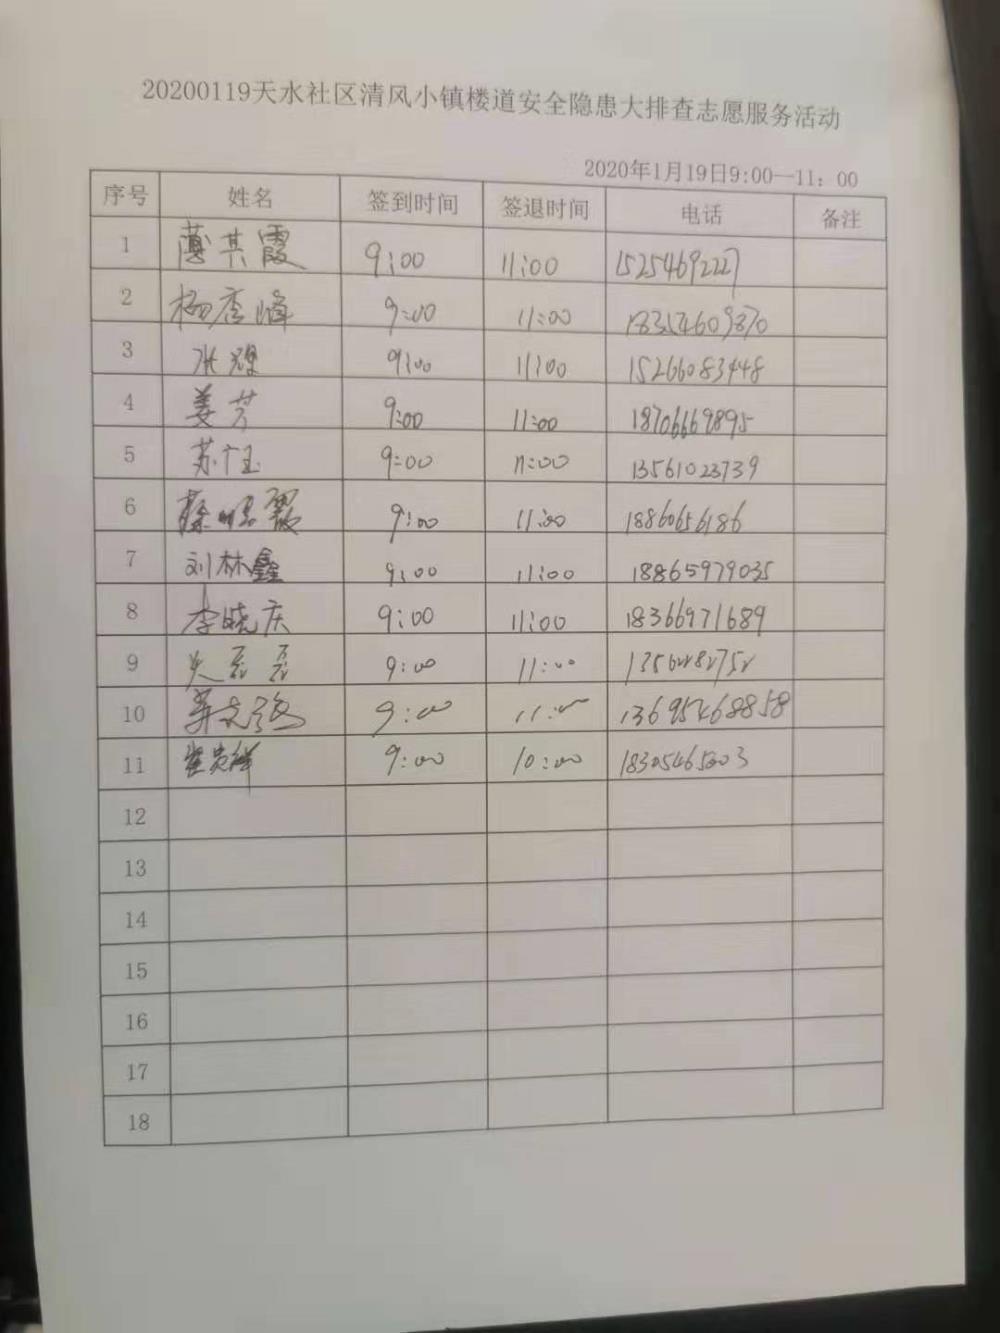 20200119天水社区清风小镇楼道安全隐患大排查志愿服务活动
2020年1月19日9:00—11：00
序号 姓名 签到时间 签退时间 电话 备注
1 薄其霞 9:00 11:00 15254692227
2 杨秀峰 9:00 11:00 18354609870
3 张煜 9:00 11:00 15266083448
4 姜芳 9:00 11:00 18706669895
5 苏广玉 9:00 11:00 13561023739
6 9:00 11:00 18860656186
7 刘林鑫 9:00 11:00 18865979035
8 李晓庆 9:00 11:00 18366971689
9 9:00 11:00
10 9:00 11:00 13695468858
11 崔贵祥 9:00 10:00 18305465003
12
13
14
15
16
17
18